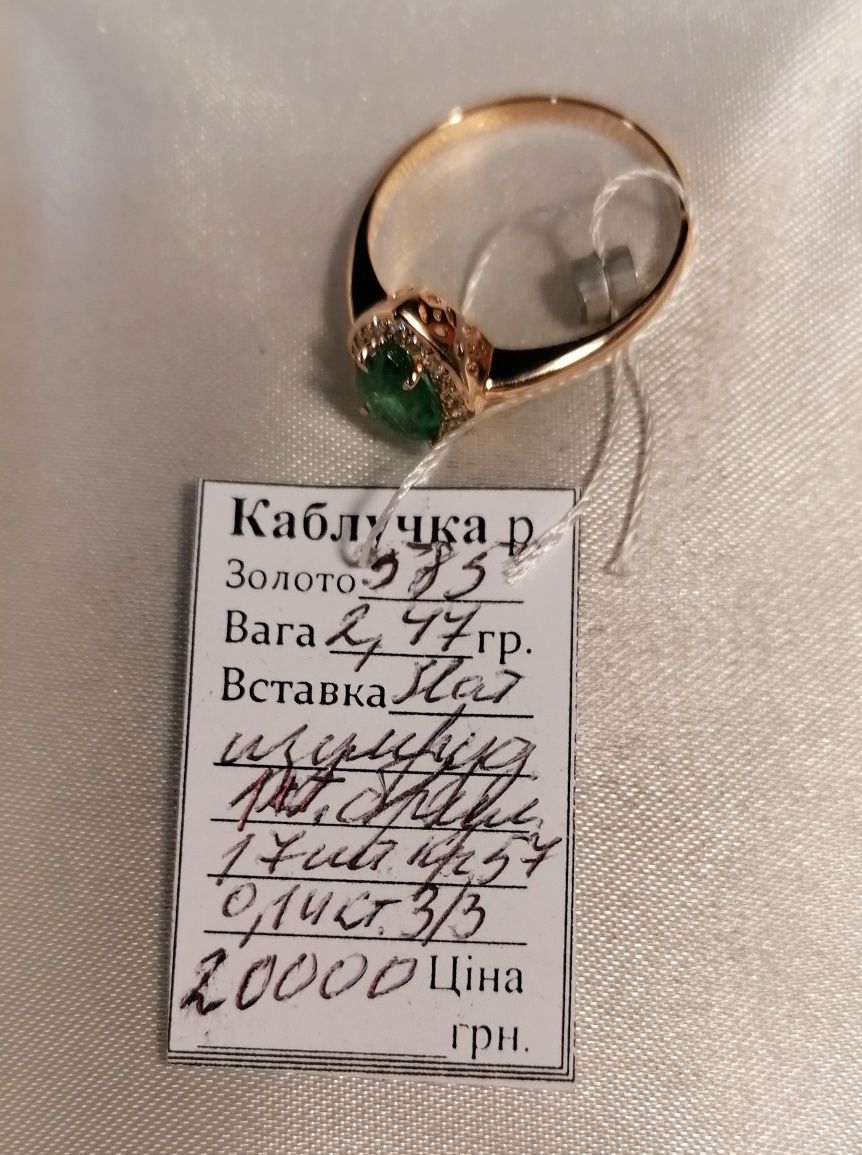 Каблучка р.
Золото 585
Вага 2,47 гр.
Вставка Нат
изумруд
1ct, брил.
17шт Кр57
0,14ct. 3/3
20000 Ціна
грн.